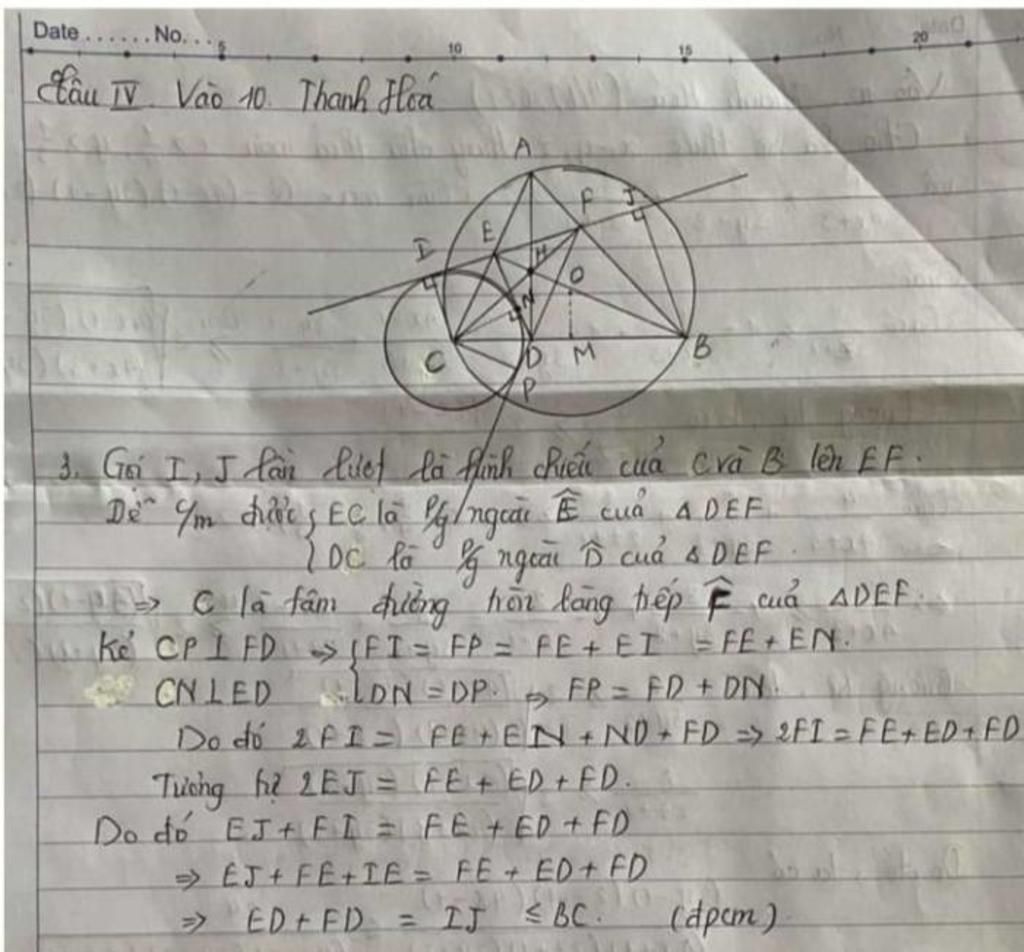 Date ...... No. ... 5 10 15 20
Câu IV. Vào 10. Thanh Hoá
A
F J
E
I H
O
N
C D M B
P
3. Gọi I, J lần lượt là hình chiếu của C và B lên EF.
Dễ c/m được { EC là p/g ngoài Ê của Δ DEF
{ DC là p/g ngoài D̂ của Δ DEF.
=> C là tâm đường tròn bàng tiếp F̂ của ΔDEF.
Kẻ CP ⊥ FD => { FI = FP = FE + EI = FE + EN.
CN ⊥ ED { DN = DP. => FP = FD + DN.
Do đó 2FI = FE + EN + ND + FD => 2FI = FE + ED + FD
Tương tự 2EJ = FE + ED + FD.
Do đó EJ + FI = FE + ED + FD
=> EJ + FE + IE = FE + ED + FD
=> ED + FD = IJ ≤ BC. (đpcm)